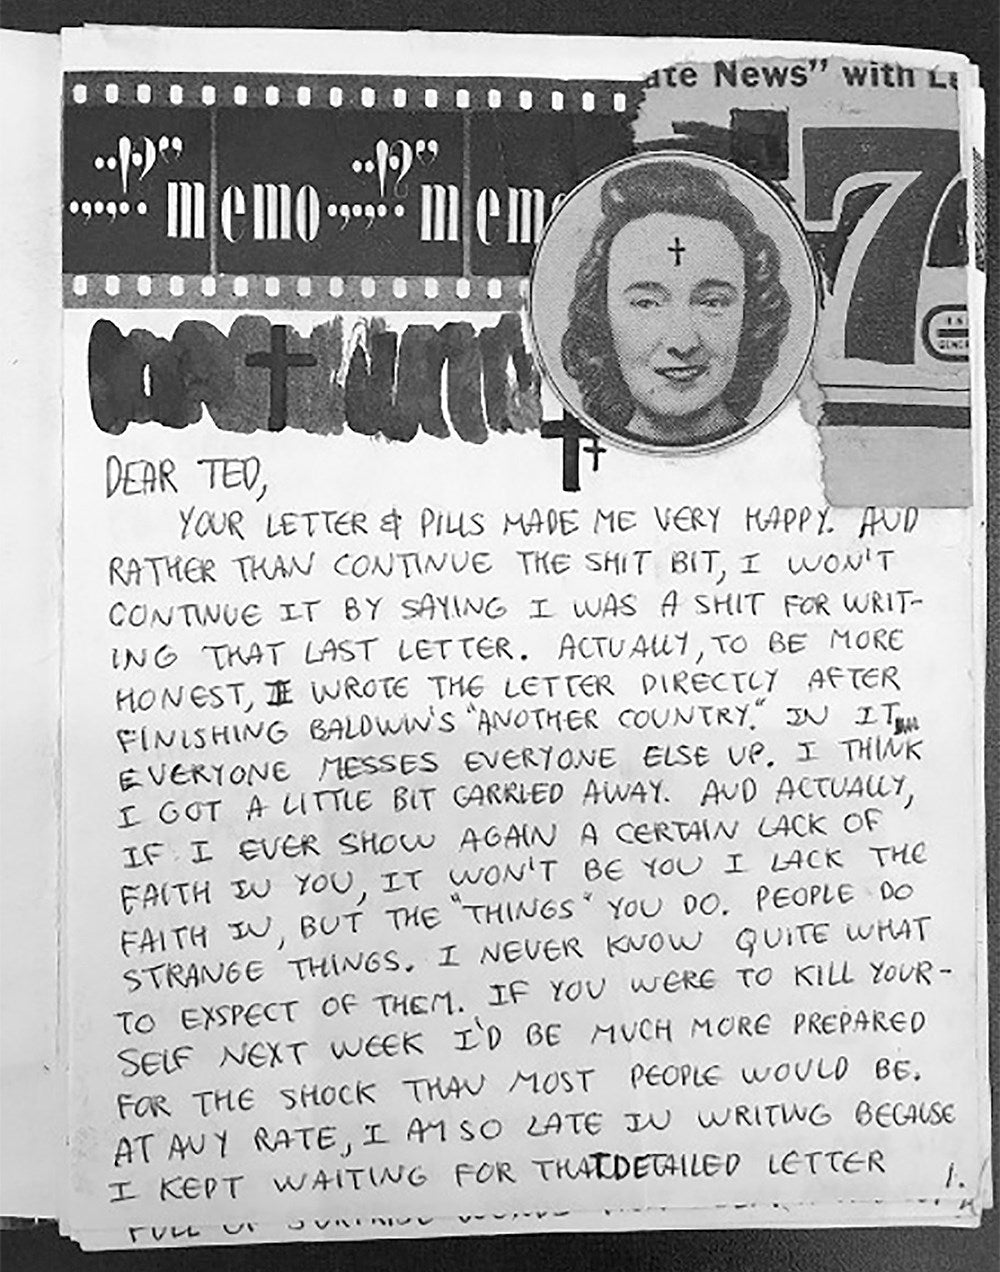 ate News" with La
memo memo mem
7
DEAR TED,
YOUR LETTER & PILLS MADE ME VERY HAPPY. AND
RATHER THAN CONTINUE THE SHIT BIT, I WON'T
CONTINUE IT BY SAYING I WAS A SHIT FOR WRIT-
ING THAT LAST LETTER. ACTUALLY, TO BE MORE
HONEST, I WROTE THE LETTER DIRECTLY AFTER
FINISHING BALDWIN'S "ANOTHER COUNTRY." IN IT
EVERYONE MESSES EVERYONE ELSE UP. I THINK
I GOT A LITTLE BIT CARRIED AWAY. AND ACTUALLY,
IF I EVER SHOW AGAIN A CERTAIN LACK OF
FAITH IN YOU, IT WON'T BE YOU I LACK THE
FAITH IN, BUT THE "THINGS" YOU DO. PEOPLE DO
STRANGE THINGS. I NEVER KNOW QUITE WHAT
TO EXSPECT OF THEM. IF YOU WERE TO KILL YOUR-
SELF NEXT WEEK I'D BE MUCH MORE PREPARED
FOR THE SHOCK THAN MOST PEOPLE WOULD BE.
AT ANY RATE, I AM SO LATE IN WRITING BECAUSE
I KEPT WAITING FOR THAT DETAILED LETTER
1.
FULL OF SURPRISE